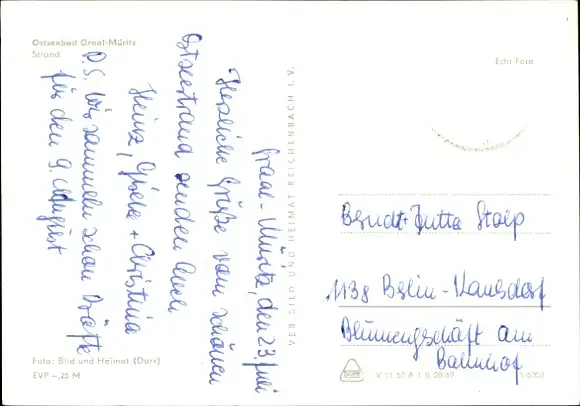 Ostseebad Graal-Müritz
Strand
Echt Foto
Graal-Müritz, den 23. Juli
Herzliche Grüße vom schönen
Ostseestrand senden Euch
Heinz, Gisela + Christina
P.S. Wir sammeln schon Kräfte
für den 9. August
VEB BILD UND HEIMAT REICHENBACH I. V.
Berndt + Jutta Stolp
1138 Berlin-Kaulsdorf
Blumengeschäft am
Bahnhof
Foto: Bild und Heimat (Darr)
EVP –,25 M
V 11 50 A 1 B 20/69